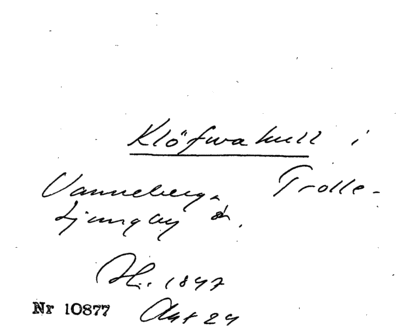 Klöfwakull i
Vanneberga, Trolle-
Ljungby s.
1847
Nr 10877 Akt 24